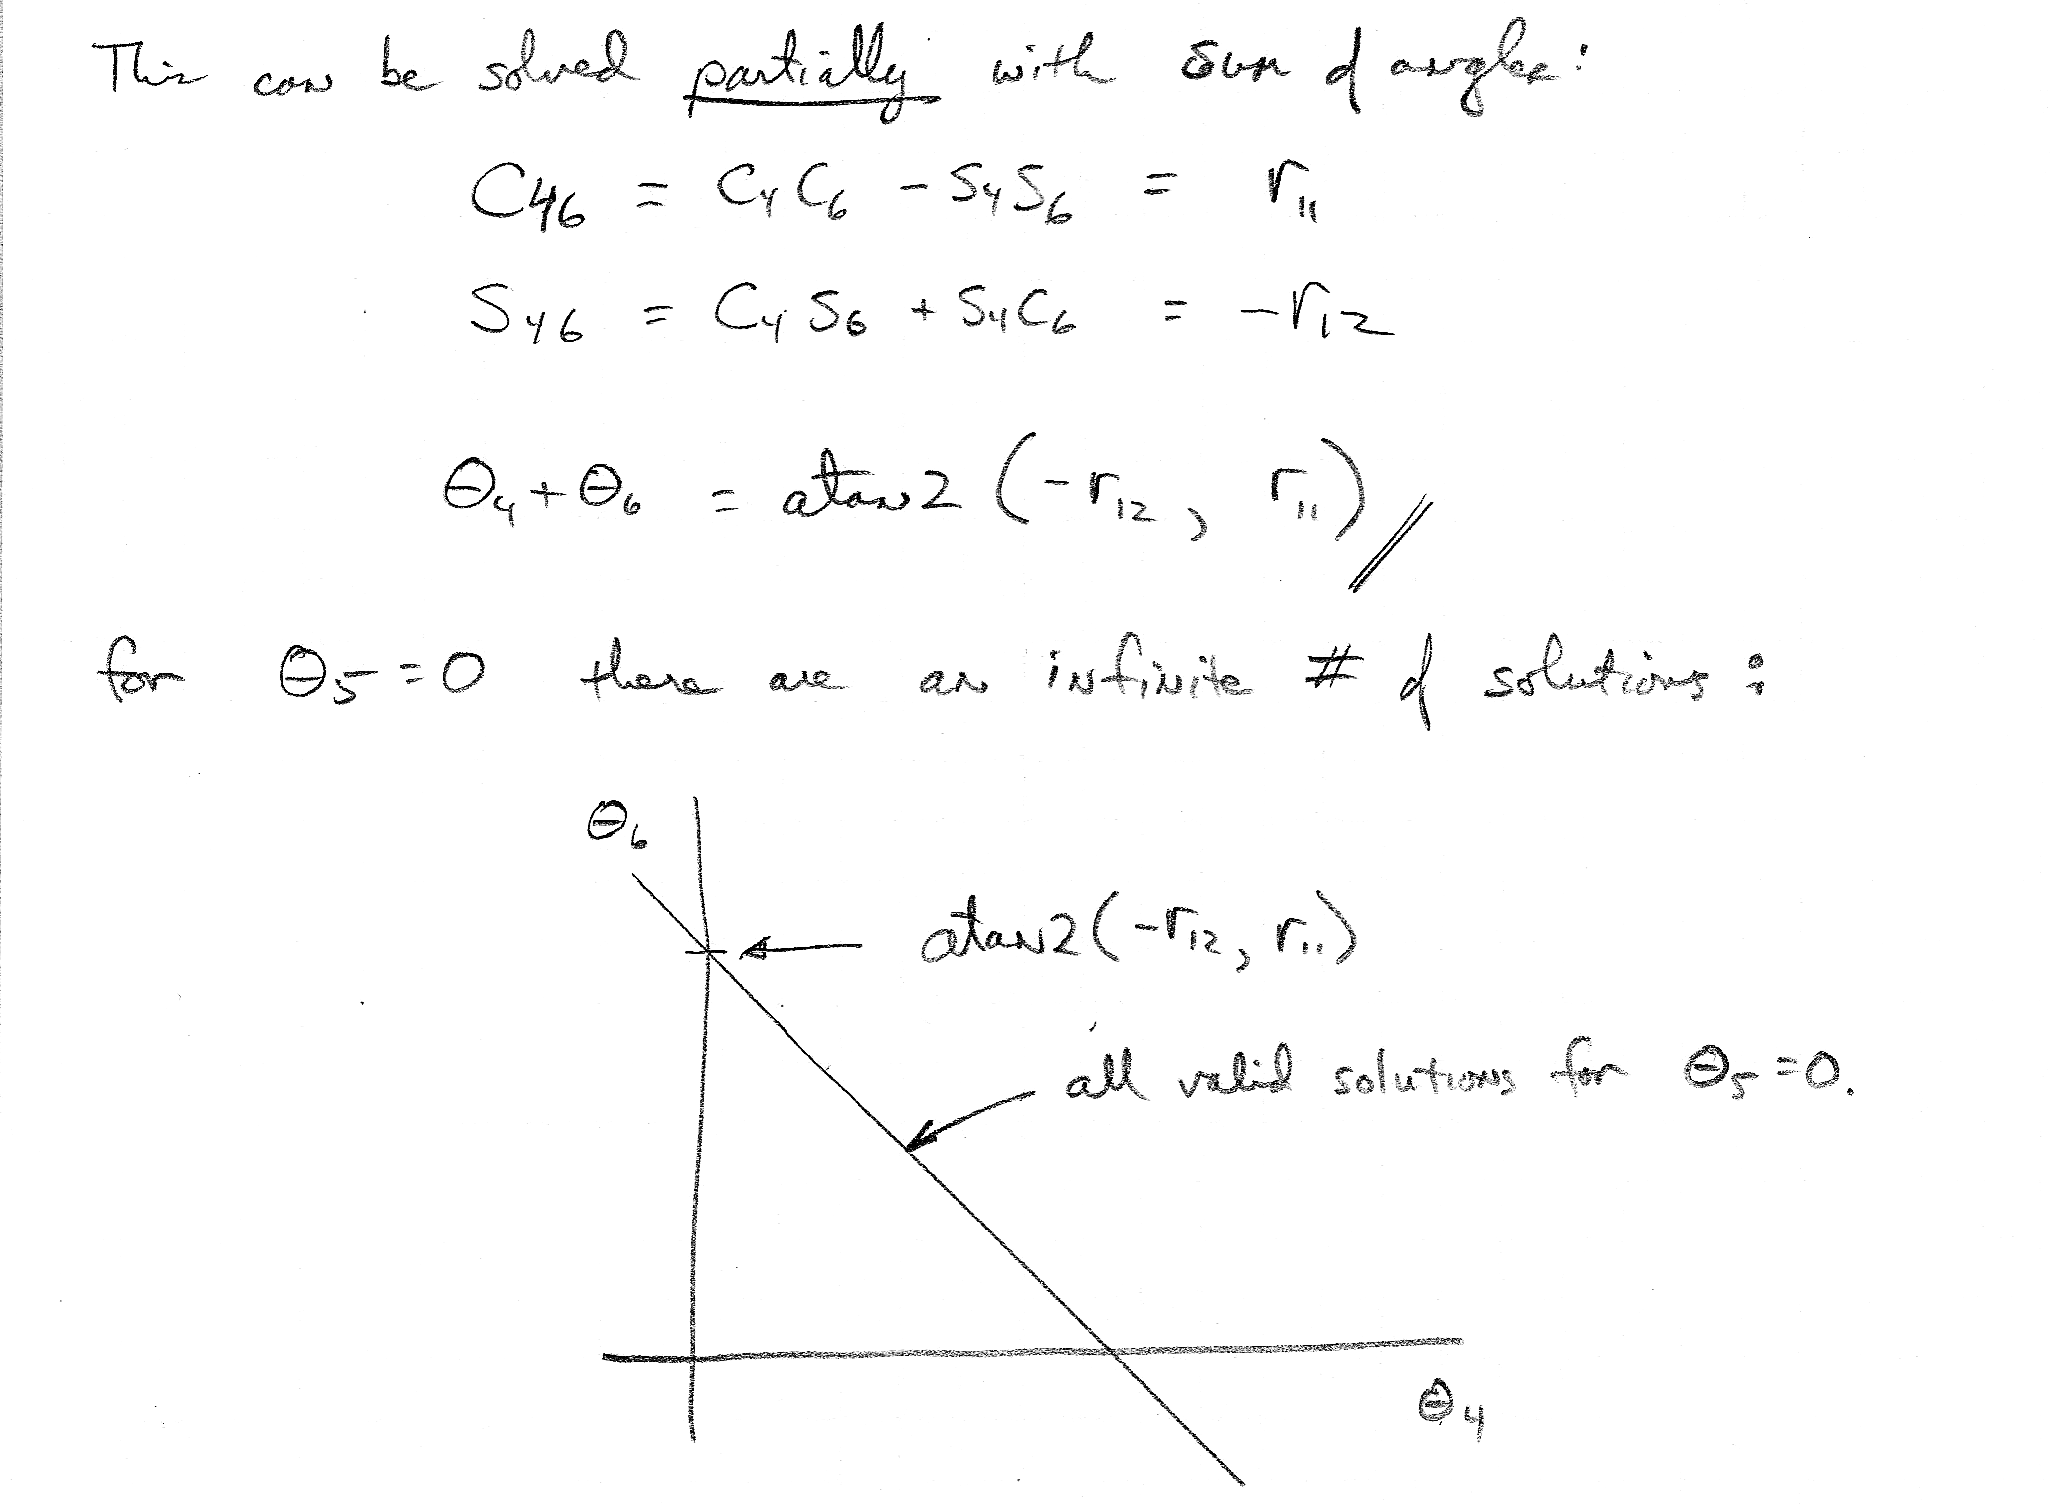 This can be solved partially with sum of angles:
C46 = C4C6 - S4S6 = r11
S46 = C4S6 + S4C6 = -r12
θ4+θ6 = atan2(-r12, r11)
for θ5=0 there are an infinite # of solutions:
θ6
atan2(-r12, r11)
all valid solutions for θ5=0.
θ4